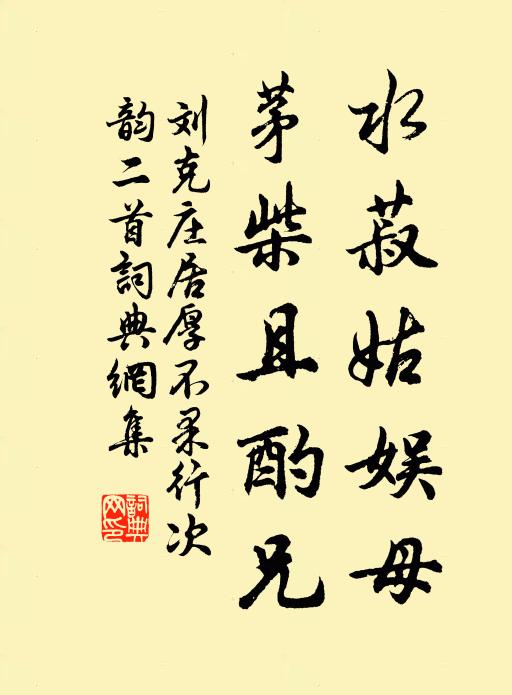 水菽姑娱母
茅柴且酌兄
刘克庄居厚不果行次
韵二首詞典網集
詞典網印